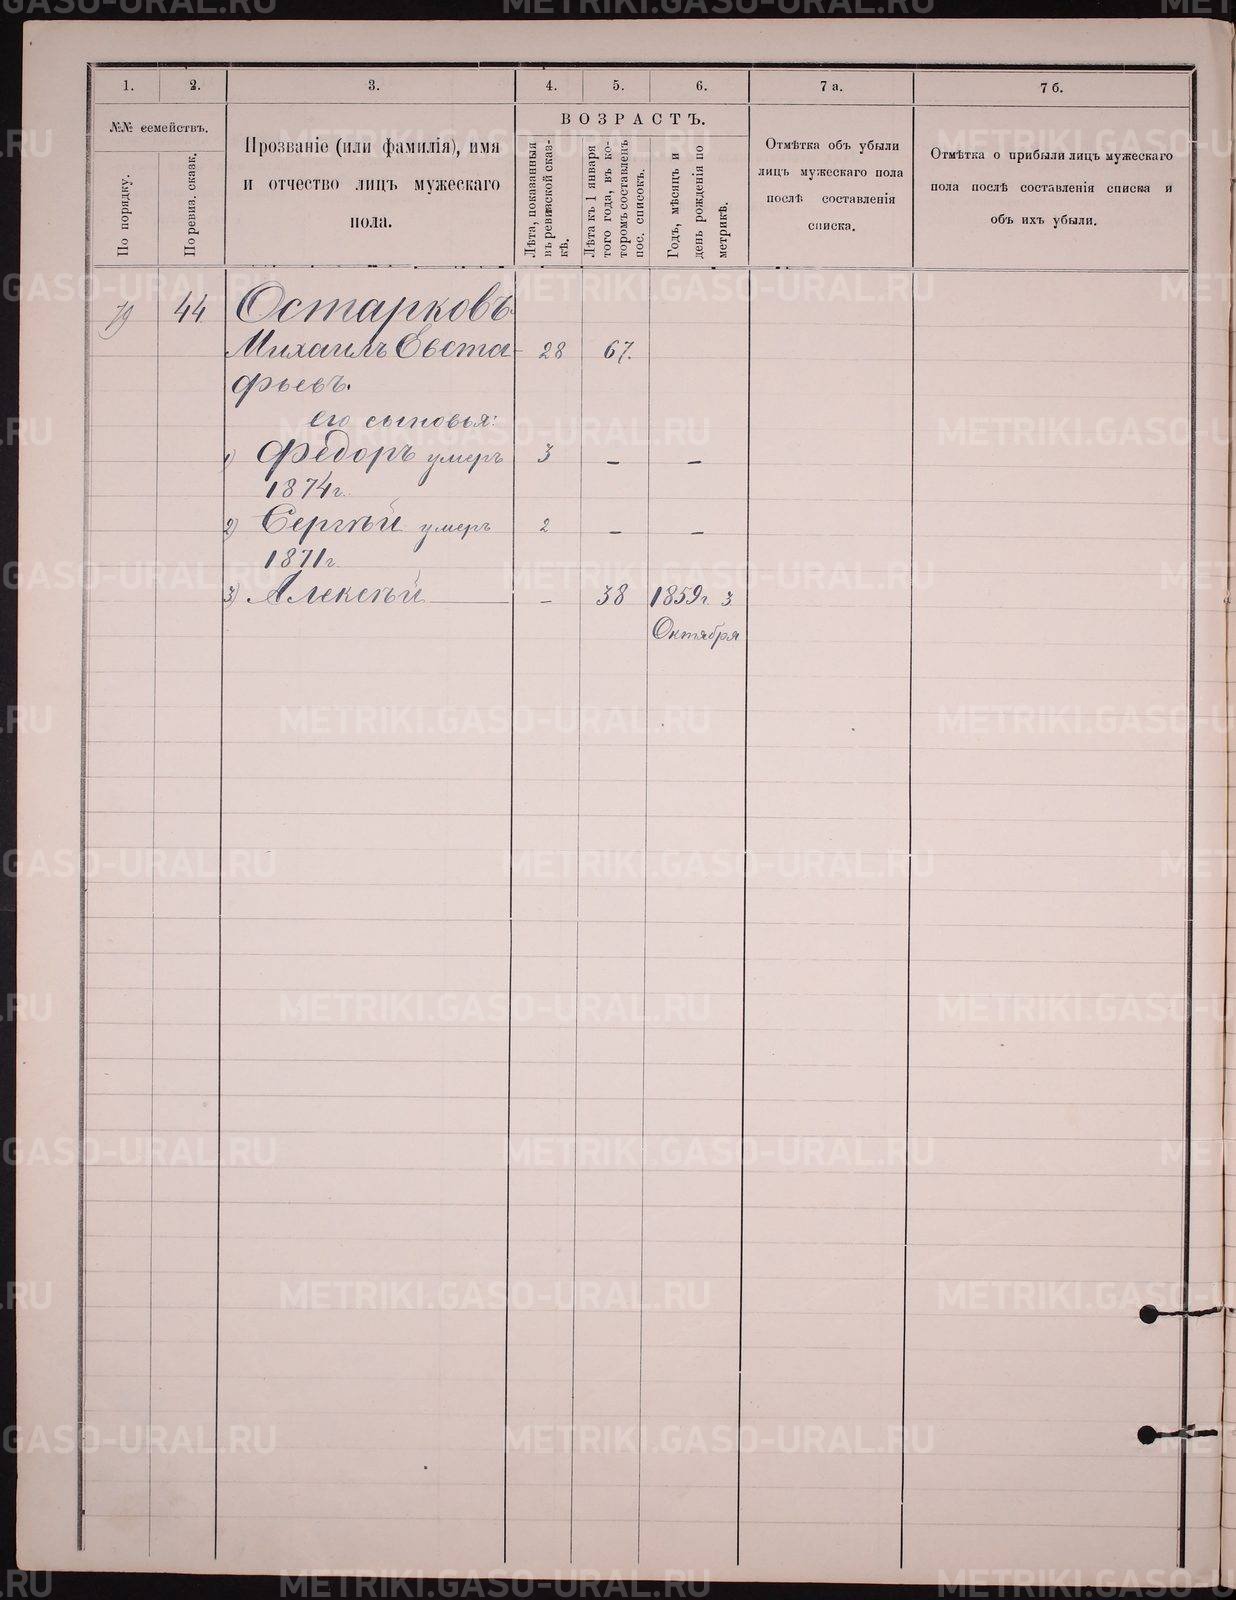 1. 2. 3. 4. 5. 6. 7 а. 7 б.
№№ семействъ.
По порядку.
По ревиз. сказк.
Прозваніе (или фамилія), имя
и отчество лицъ мужескаго
пола.
ВОЗРАСТЪ.
Лѣта, показанныя
въ ревизской сказ-
кѣ.
Лѣта къ 1 января
того года, въ ко-
торомъ составленъ
пос. списокъ.
Годъ, мѣсяцъ и
день рожденія по
метрикѣ.
Отмѣтка объ убыли
лицъ мужескаго пола
послѣ составленія
списка.
Отмѣтка о прибыли лицъ мужескаго
пола послѣ составленія списка и
объ ихъ убыли.
44 Остарковъ
Михаилъ Евста- 28 67.
фьевъ.
его сыновья:
1) Федоръ умеръ 3 – –
1874 г.
2) Сергѣй умеръ 2 – –
1871 г.
3) Алексѣй — – 38 1859 г. 3
Октября
METRIKI.GASO-URAL.RU